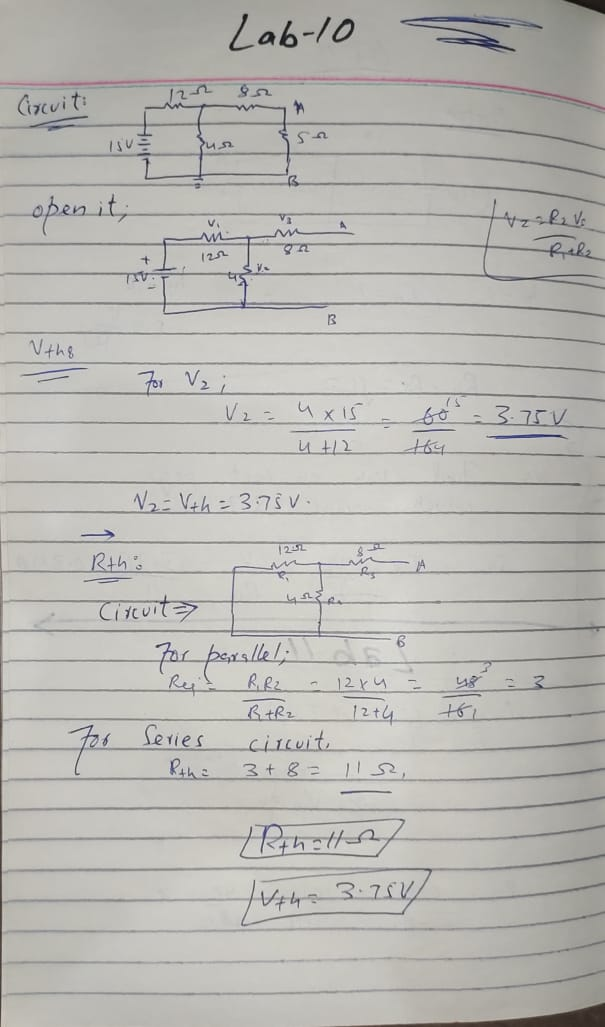 Lab-10
Circuit:
12Ω 8Ω A
15V 4Ω 5Ω
B
open it;
V1 V3 A
12Ω 8Ω
+ 15V - 4Ω V2
B
V2 = R2 Vs / R1+R2
Vth:
For V2;
V2 = 4 x 15 / 4 +12 = 60 15 / 16 4 = 3.75 V
V2 = Vth = 3.75 V.
→
Rth:
12Ω 8Ω A
R1 R3
4Ω R2
Circuit ⇒
B
For parallel;
Req = R1R2 / R1+R2 = 12 x 4 / 12+4 = 48 3 / 16 1 = 3
For Series circuit,
Rth = 3 + 8 = 11 Ω,
Rth = 11 Ω
Vth = 3.75V